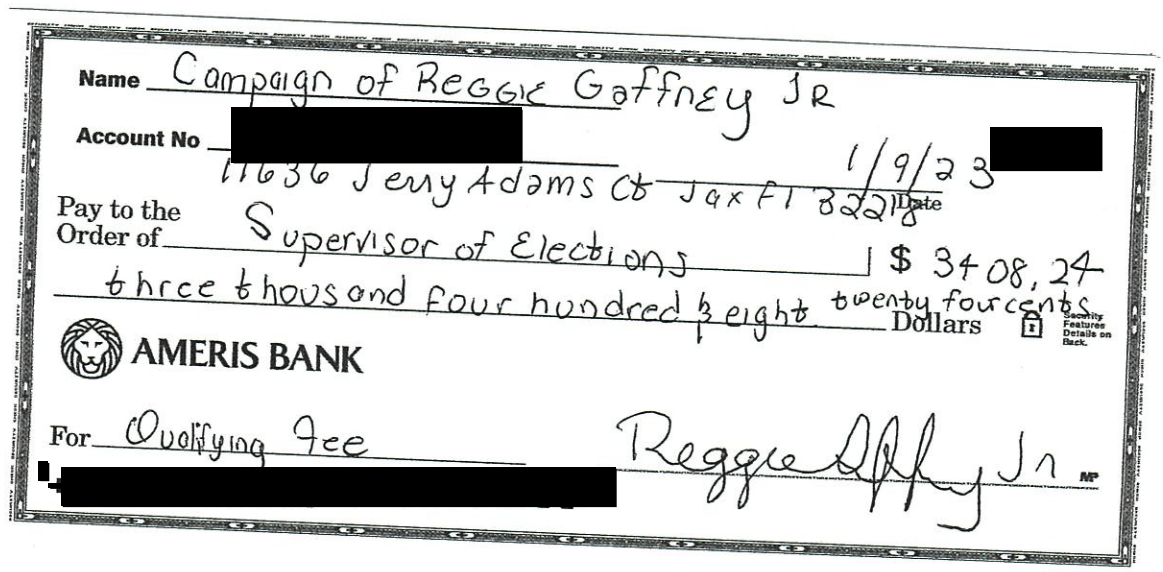 Name Campaign of Reggie Gaffney JR
Account No
1/9/23
11636 Jerry Adams Ct Jax Fl 32218 Date
Pay to the
Order of Supervisor of Elections $ 3408,24
three thousand four hundred & eight twenty four cents Dollars
Security
Features
Details on
Back.
AMERIS BANK
For Qualifying Fee Reggie Gaffney Jr MP